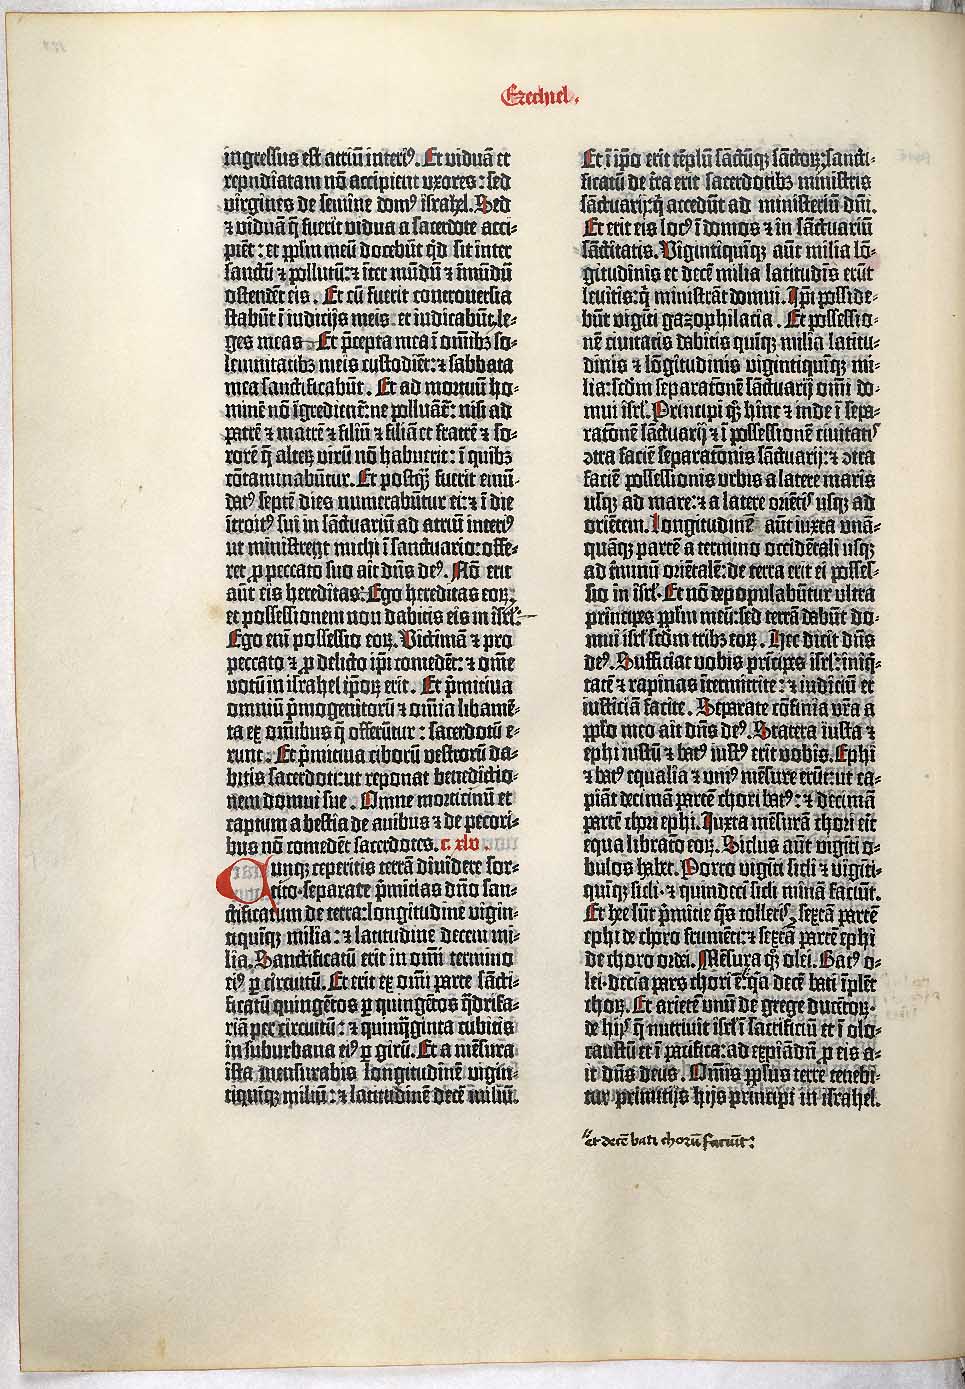 Ezechiel.
ingressus est atriū interiꝰ. Et viduā et
repudiatam nō accipient uxores: sed
virgines de semine domꝰ israhel. Sed
⁊ viduā q̄ fuerit vidua a sacerdote acci-
piēt: et pp̄lm meū docebūt q̇d sit inter
sanctū ⁊ pollutū: ⁊ īter mūdū ⁊ īmūdū
ostendēt eis. Et cū fuerit controversia
stabūt ī iudicijs meis. et iudicabūt: le-
ges meas. Et p̄cepta mea ī omībꝫ so-
lennitatibꝫ meis custodiēt: ⁊ sabbata
mea sanctificabūt. Et ad mortuū ho-
minē nō īgredientᷣ: ne polluātᷣ: nisi ad
patrē ⁊ matrē ⁊ filiū ⁊ filiā et fratrē ⁊ so-
rorē q̄ alteꝝ virū nō habuerit: ī quibꝫ
cōtaminabūtur. Et postq̄ꝫ fuerit emū-
datꝰ septē dies numerabūtur ei: ⁊ ī die
ītroitꝰ sui in sāctuariū ad atriū interiꝰ
ut ministret michi ī sanctuario: offe-
ret ꝓ peccato suo ait dn̄s deꝰ. Nō erit
aūt eis hereditas: Ego hereditas eoꝝ.
et possessionem non dabitis eis in isrl̄:
Ego eni possessio eoꝝ. Victimā ⁊ pro
peccato ⁊ ꝓ delicto ipi comedēt: ⁊ om̄e
votū in israhel ip̄oꝝ erit. Et p̄mitiva
omniū p̄mogenitorū ⁊ om̄ia libamē-
ta ex om̄ibus q̄ offerūtur: sacerdotū e-
runt: Et p̄mitiva ciborū vestrorū da-
bitis sacerdoti: ut reponat benedictio-
nem domui sue. Omne morticinū et
captum a bestia de avibus ⁊ de pecori-
bus nō comedēt sacerdotes. c. xlv.
Cunqꝫ ceperitis terrā dividere sor-
tito. separate p̄mitias dn̄o san-
ctificatum de terra: longitudine vigin-
tiquīqꝫ milia: ⁊ latitudinē decem mi-
lia. Sanctificatū erit in om̄i termino
eiꝰ ꝑ circuitū. Et erit ex om̄i parte sācti-
ficatū quingētos ꝑ quingētos q̄drifa-
riā per circuitū: ⁊ quinq̄ginta cubitis
in suburbana eiꝰ ꝑ girū. Et a mēsura
ista mensurabis longitudinē vigin-
tiquīqꝫ miliū: ⁊ latitudinē decē miliū.
Et ī ip̄o erit tēplū sāctūqꝫ sāctoꝝ: sancti-
ficatū de t̄ra erit sacerdotibꝫ ministris
sāctuarij: q̄ accedūt ad ministeriū dn̄i.
Et erit eis locꝰ ī domos ⁊ in sāctuariū
sāctitatis. Vigintiquīqꝫ aūt milia lō-
gitudinis et decē milia latitudīs erūt
levitis: q̄ ministrāt domui. Ip̄i posside-
būt vigīti gazophilacia. Et possessio-
nē civitatis dabitis quīqꝫ milia latitu-
dinis ⁊ lōgitudinis vigintiquīqꝫ mi-
lia: scd̄m separatōnē sāctuarij om̄i do-
mui isrl̄. Principi qꝫ hīnc ⁊ inde ī sepa-
ratōnē sāctuarij ⁊ ī possessionē civitatꝭ
ↄtra faciē separatōnis sāctuarij: ⁊ ↄtra
faciē possessionis urbis a latere maris
usqꝫ ad mare: ⁊ a latere oriētꝭ usqꝫ ad
oriētem. Longitudinē aūt iuxta unā-
quāqꝫ partē a termino occidētali usqꝫ
ad t̄minū oriētalē: de terra erit ei posses-
sio in isrl̄. Et nō depopulabūtur ultra
principes pp̄lm meū: sed terrā dabūt do-
mui isrl̄ scd̄m tribꝫ eoꝝ. Hec dicit dn̄s
deꝰ. Sufficiat vobis prīcipes isrl̄: iniq̄-
tatē ⁊ rapinas ītermittite: ⁊ iudiciū et
iusticiā facite. Separate cōfinia vr̄a a
pp̄lo meo ait dn̄s deꝰ. Statera iusta ⁊
ephi iustū ⁊ batꝰ iustꝰ erit vobis. Ephi
⁊ batꝰ equalia ⁊ unꝰ mēsure erūt: ut ca-
piāt decimā partē chori batꝰ: ⁊ decimā
partē chori ephi. Iuxta mēsurā chori erit
equa libratō eoꝝ. Siclus aūt vigīti o-
bulos habet. Porro vigīti sicli ⁊ vigīti-
quīqꝫ sicli. ⁊ quindecī sicli minā faciūt.
Et hee sūt p̄mitie q̄s tolletis. sextā partē
ephi de choro frumēti: ⁊ sextā partē ephi
de choro ordei. Mēsura qꝫ olei. Batꝰ o-
lei. decīa pars chori ē. q̇a decē bati īplēt
choꝝ. Et arietē unū de grege ducētoꝝ.
de hijs q̄ nutriūt isrl̄ ī sacrificiū et ī olo-
caustū et ī pacifica: ad expiādū ꝓ eis a-
it dn̄s deus. Om̄is pp̄lus terre tenebi-
tur primitijs hijs principi in israhel.
et decē bati chorum faciūt: